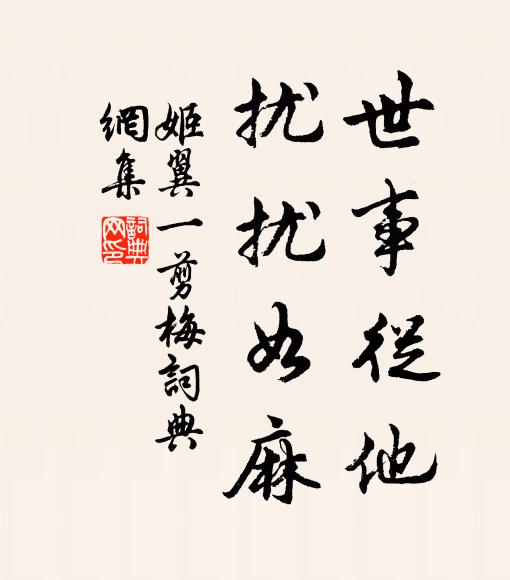 世事從他
扰扰如麻
姬翼一剪梅詞典
網集
詞典
网印